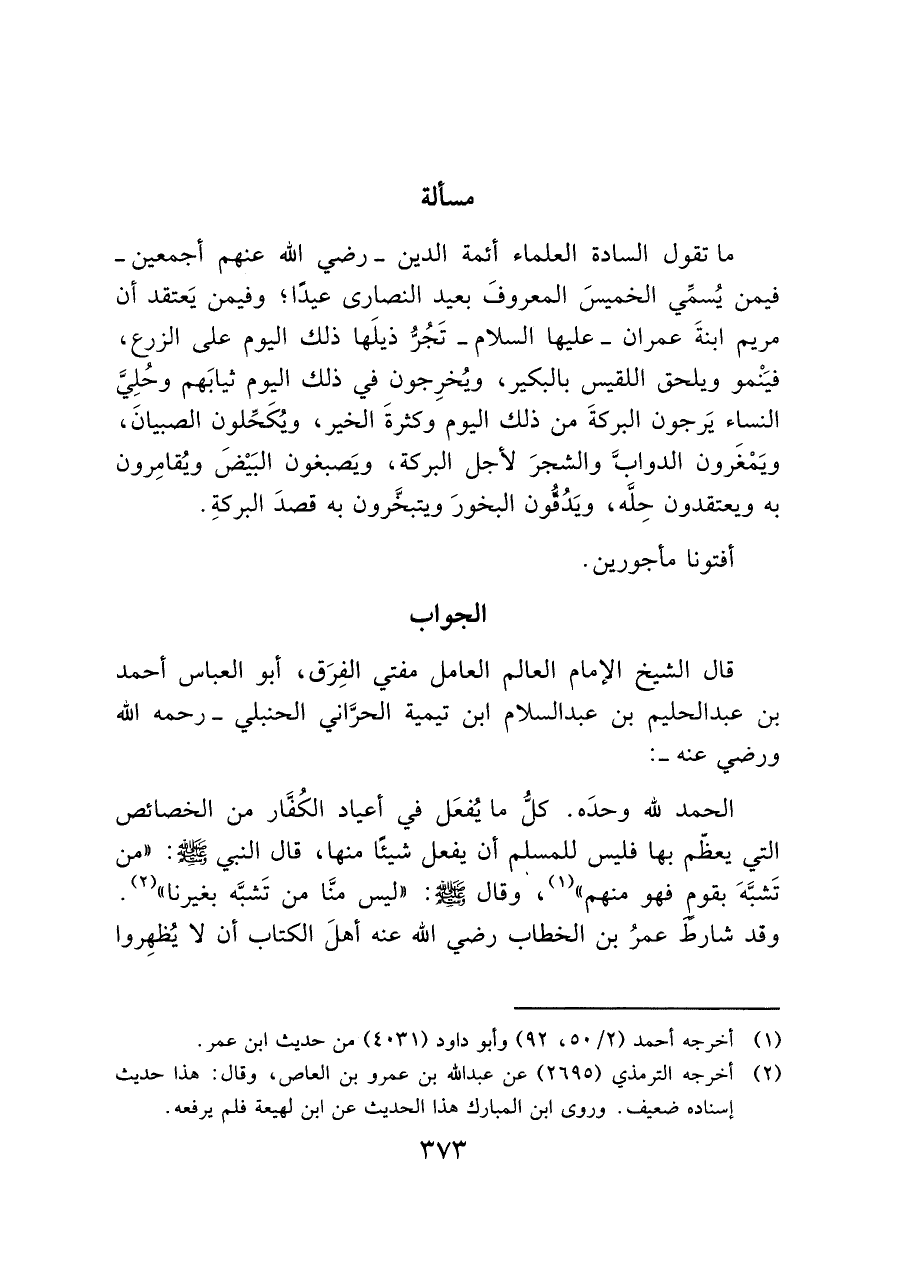 مسألة
ما تقول السادة العلماء أئمة الدين ـ رضي الله عنهم أجمعين ـ
فيمن يُسمِّي الخميسَ المعروفَ بعيد النصارى عيدًا؛ وفيمن يَعتقد أن
مريم ابنةَ عمران ـ عليها السلام ـ تَجُرُّ ذيلَها ذلك اليوم على الزرع،
فيَنْمو ويلحق اللقيس بالبكير، ويُخرِجون في ذلك اليوم ثيابَهم وحُلِيَّ
النساء يَرجون البركةَ من ذلك اليوم وكثرةَ الخير، ويُكَحِّلون الصبيانَ،
ويَمْغَرون الدوابَّ والشجرَ لأجل البركة، ويَصبغون البَيْضَ ويُقامِرون
به ويعتقدون حِلَّه، ويَدُقُّون البخورَ ويتبخَّرون به قصدَ البركةِ.
أفتونا مأجورين.
الجواب
قال الشيخ الإمام العالم العامل مفتي الفِرَق، أبو العباس أحمد
بن عبدالحليم بن عبدالسلام ابن تيمية الحرَّاني الحنبلي ـ رحمه الله
ورضي عنه ـ:
الحمد لله وحدَه. كلُّ ما يُفعَل في أعياد الكُفَّار من الخصائص
التي يعظّم بها فليس للمسلم أن يفعل شيئًا منها، قال النبي ﷺ: «من
تَشبَّهَ بقومٍ فهو منهم»(١)، وقال ﷺ: «ليس منَّا من تَشبَّه بغيرنا»(٢).
وقد شارطَ عمرُ بن الخطاب رضي الله عنه أهلَ الكتاب أن لا يُظهِروا
(١) أخرجه أحمد (٢/ ٥٠، ٩٢) وأبو داود (٤٠٣١) من حديث ابن عمر.
(٢) أخرجه الترمذي (٢٦٩٥) عن عبدالله بن عمرو بن العاص، وقال: هذا حديث
إسناده ضعيف. وروى ابن المبارك هذا الحديث عن ابن لهيعة فلم يرفعه.
٣٧٣